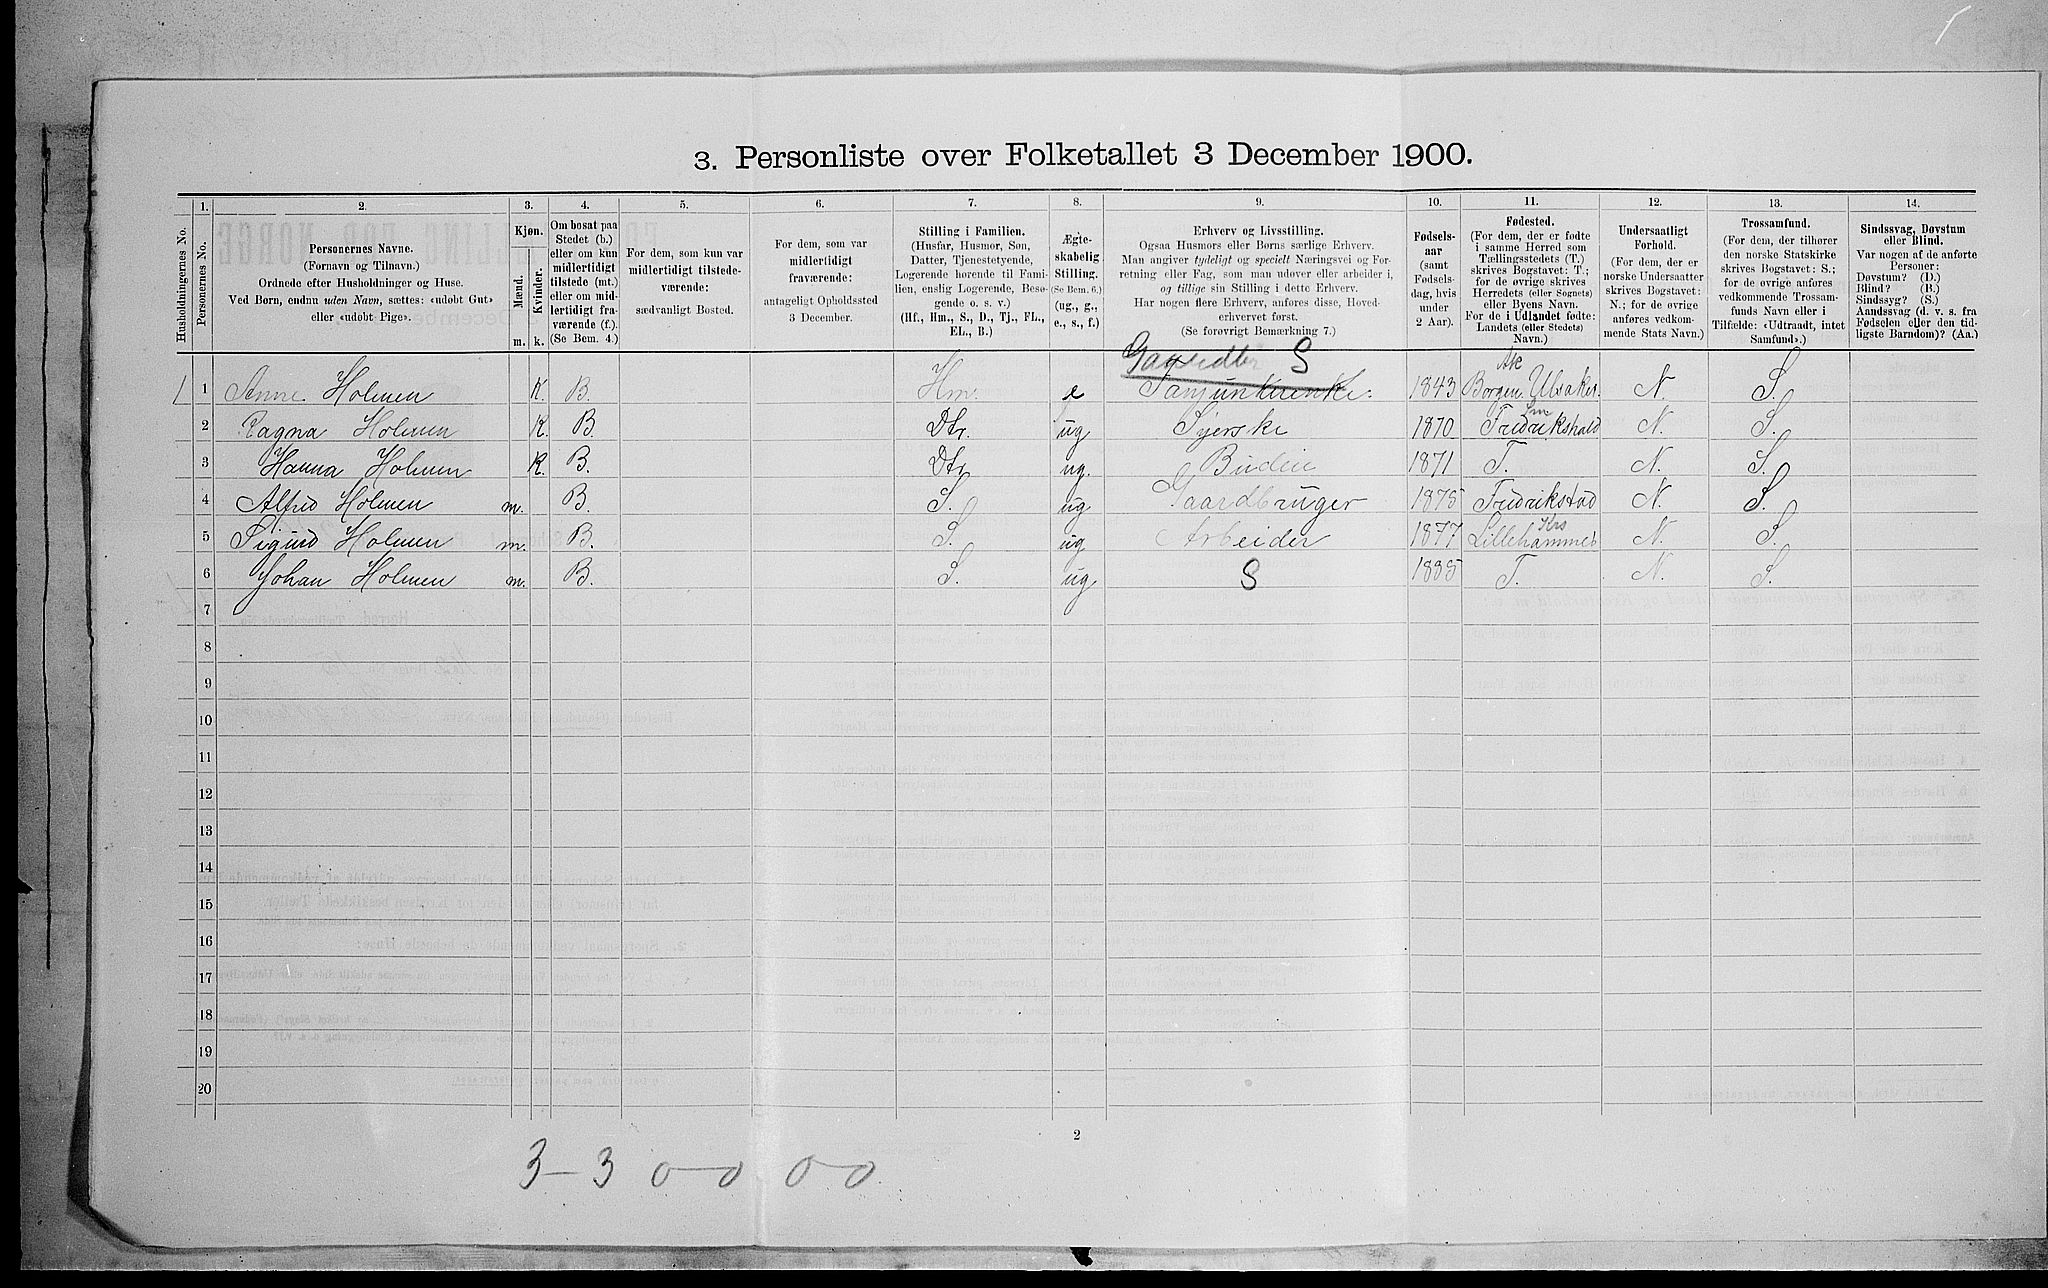 3. Personliste over Folketallet 3 December 1900.
1. 2. 3. 4. 5. 6. 7. 8. 9. 10. 11. 12. 13. 14.
Husholdningernes No.
Personernes No.
Personernes Navne.
(Fornavn og Tilnavn.)
Ordnede efter Husholdninger og Huse.
Ved Børn, endnu uden Navn, sættes: «udøbt Gut»
eller «udøbt Pige».
Kjøn.
Mænd.
Kvinder.
m. k.
Om bosat paa
Stedet (b.)
eller om kun
midlertidigt
tilstede (mt.)
eller om mid-
lertidigt fra-
værende (f.).
(Se Bem. 4.)
For dem, som kun var
midlertidigt tilstede-
værende:
sædvanligt Bosted.
For dem, som var
midlertidigt
fraværende:
antageligt Opholdssted
3 December.
Stilling i Familien.
(Husfar, Husmor, Søn,
Datter, Tjenestetyende,
Logerende hørende til Fami-
lien, enslig Logerende, Besø-
gende o. s. v.)
(Hf., Hm., S., D., Tj., FL.,
EL., B.)
Ægte-
skabelig
Stilling.
(Se Bem. 6.)
(ug., g.,
e., s., f.)
Erhverv og Livsstilling.
Ogsaa Husmors eller Børns særlige Erhverv.
Man angiver tydeligt og specielt Næringsvei og For-
retning eller Fag, som man udøver eller arbeider i,
og tillige sin Stilling i dette Erhverv.
Har nogen flere Erhverv, anføres disse, Hoved-
erhvervet først.
(Se forøvrigt Bemærkning 7.)
Fødsels-
aar
(samt
Fødsels-
dag, hvis
under
2 Aar).
Fødested.
(For dem, der er fødte
i samme Herred som
Tællingsstedets (T.)
skrives Bogstavet: T.;
for de øvrige skrives
Herredets (eller Sognets)
eller Byens Navn.
For de i Udlandet fødte:
Landets (eller Stedets)
Navn.)
Undersaatligt
Forhold.
(For dem, der er
norske Undersaatter
skrives Bogstavet:
N.; for de øvrige
anføres vedkom-
mende Stats Navn.)
Trossamfund.
(For dem, der tilhører
den norske Statskirke
skrives Bogstavet: S.;
for de øvrige anføres
vedkommende Trossam-
funds Navn eller i
Tilfælde: «Udtraadt, intet
Samfund».)
Sindssvag, Døvstum
eller Blind.
Var nogen af de anførte
Personer:
Døvstum? (D.)
Blind? (B.)
Sindssyg? (S.)
Aandssvag (d. v. s. fra
Fødselen eller den tid-
ligste Barndom)? (Aa.)
S
Ak
1 1 Anne Holmen K. B. Hm. e 1843 Borgen N. S.
2 Ragna Holmen K. B. Dtr. ug Syerske 1870 Fredrikshald N. S.
3 Hanna Holmen K. B. Dtr ug. Budeie 1871 T. N. S.
4 Alfred Holmen m. B. S. ug Gaardbruger 1875 Fredrikstad N. S.
Krs
5 Sigurd Holmen m. B. S. ug Arbeider 1877 Lillehammer N. S.
6 Johan Holmen m. B. S. ug S 1885 T. N. S.
7
8
9
10
11
12
13
14
15
16
17
18
19
20
2
3—3 0—0 0—0